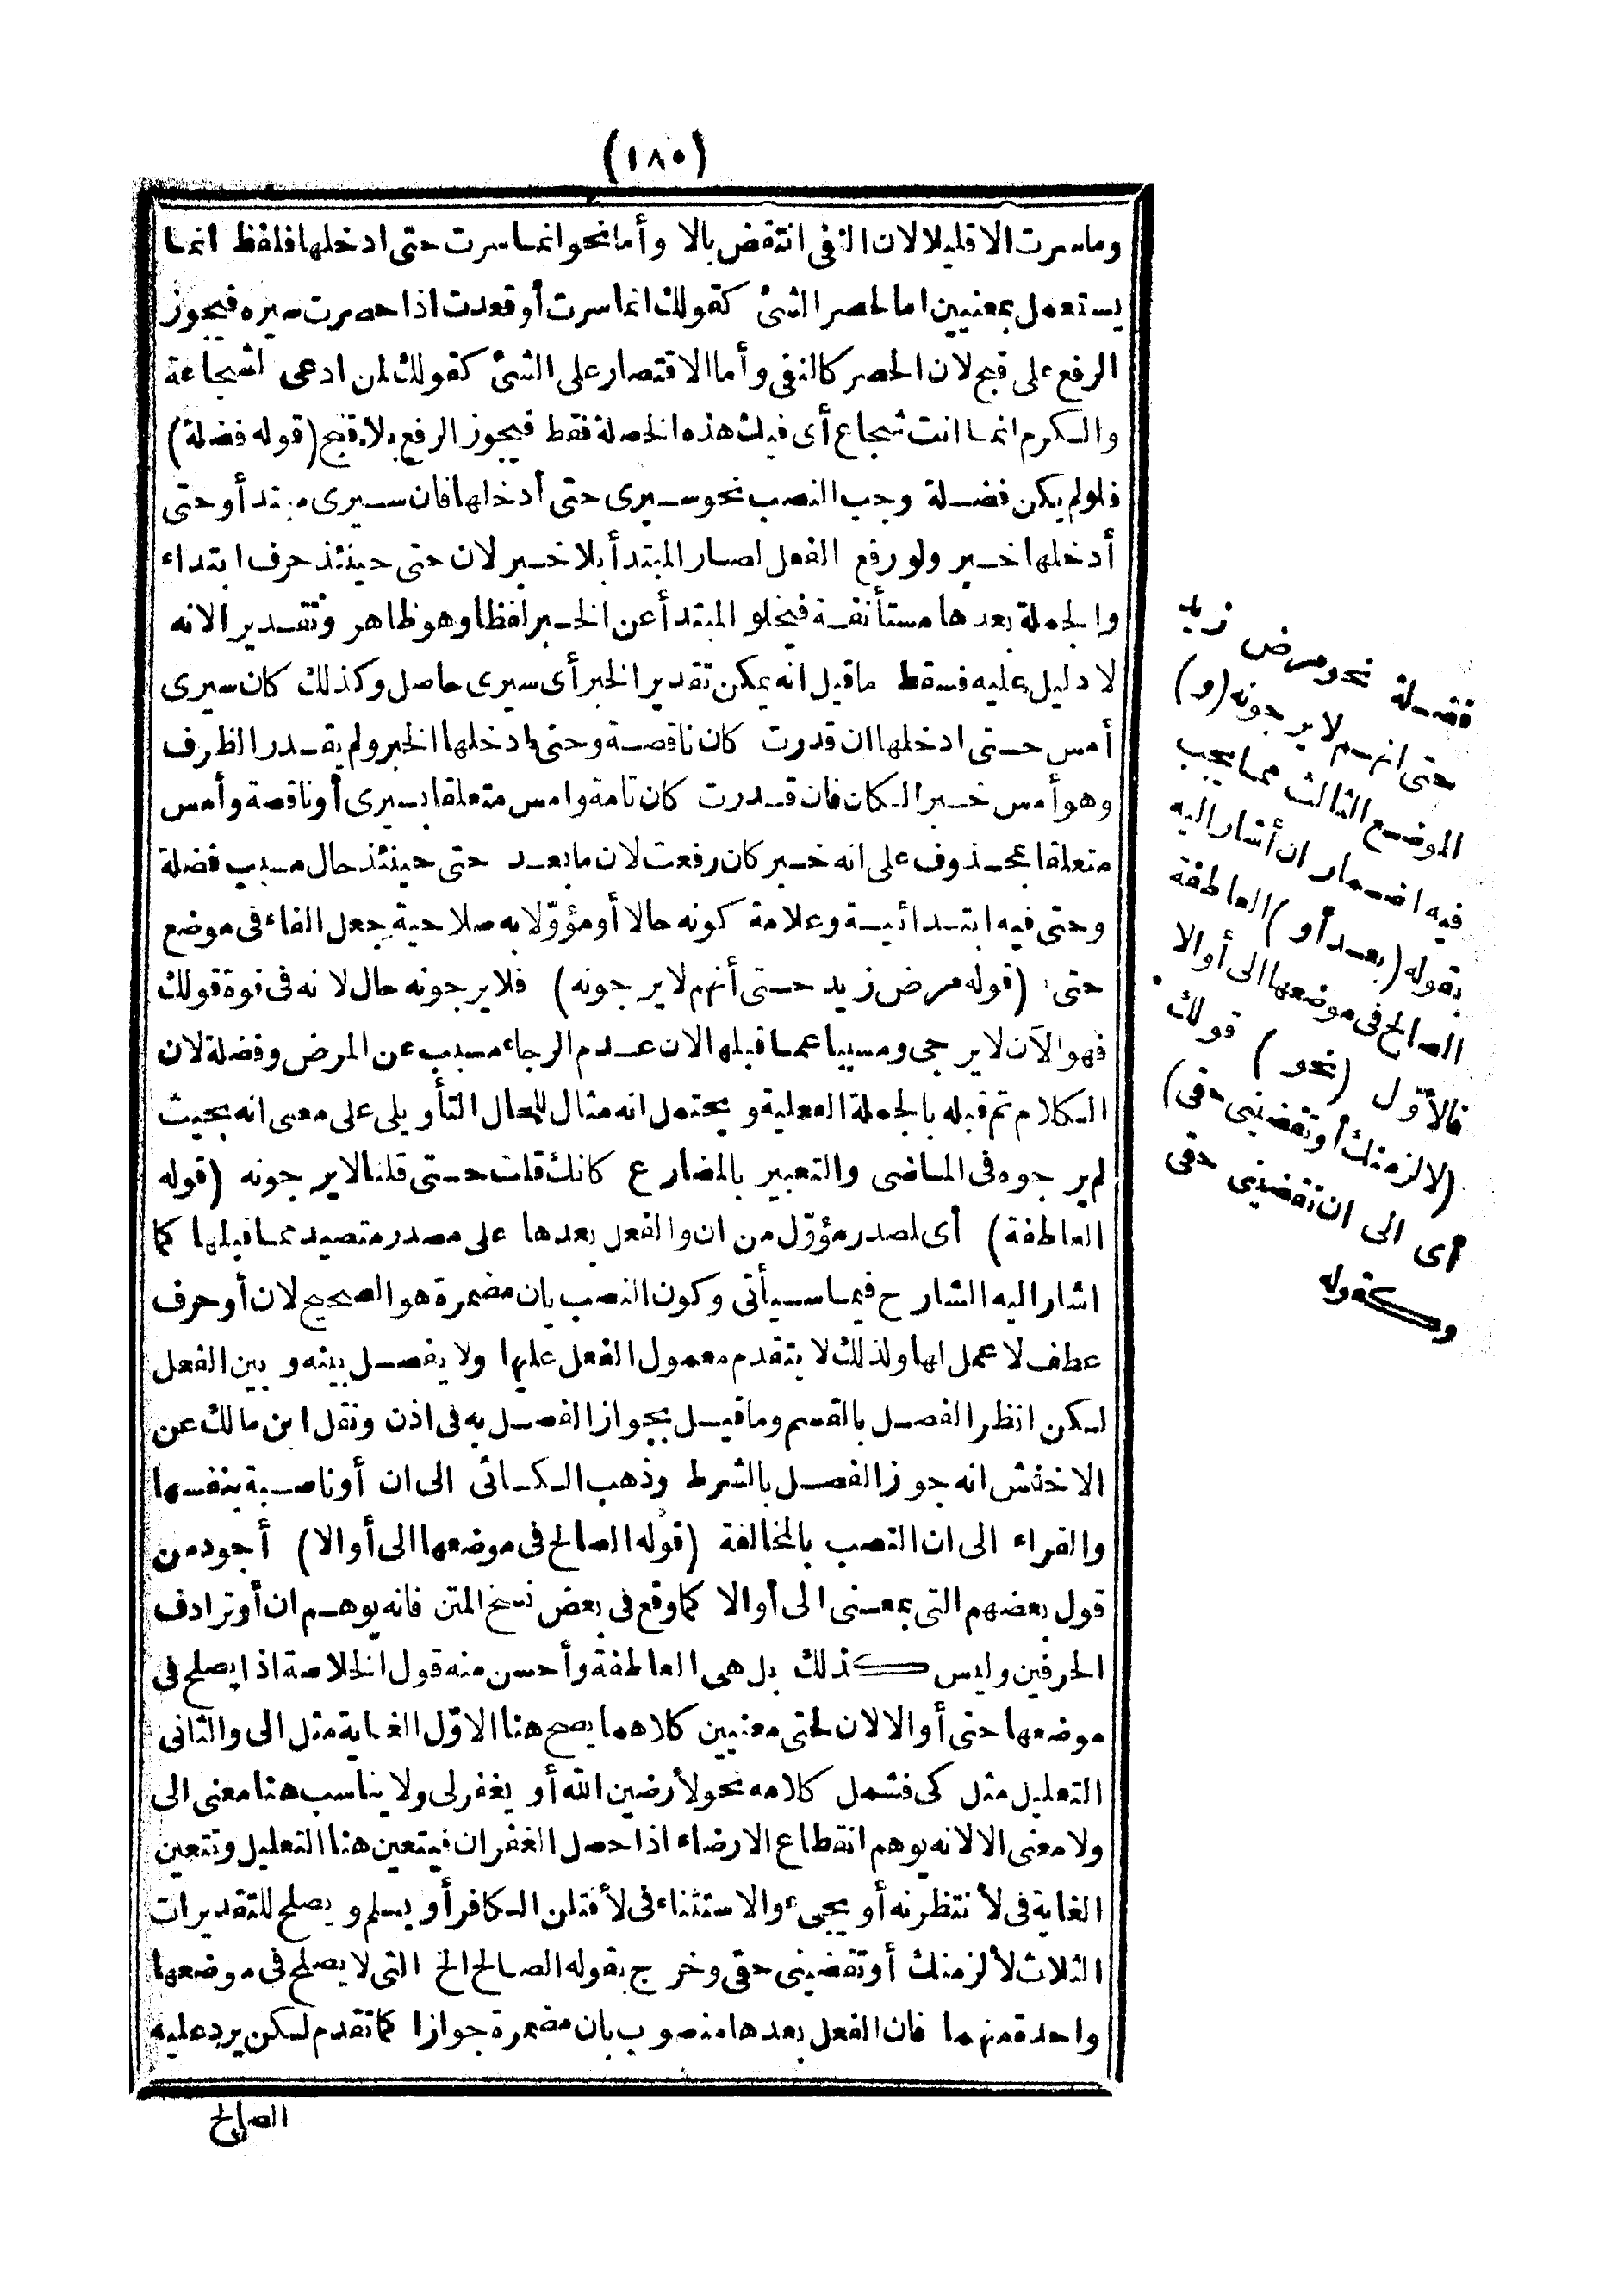 (١٨٠)
وما سرت الا قليلا لان النفى انتقض بالا وأما نحو انما سرت حتى ادخلها فلفظ انما
يستعمل بمعنيين اما لحصر الشئ كقولك انما سرت أو قعدت اذا حصرت سيره فيجوز
الرفع على قبح لان الحصر كالنفى وأما الاقتصار على الشئ كقولك لمن ادعى الشجاعة
والكرم انما انت شجاع أى فيك هذه الخصلة فقط فيجوز الرفع بلا قبح (قوله فضلة)
فلو لم يكن فضلة وجب النصب نحو سيرى حتى أدخلها فان سيرى مبتدأ وحتى
أدخلها خبر ولو رفع الفعل لصار المبتدأ بلا خبر لان حتى حينئذ حرف ابتداء
والجملة بعدها مستأنفة فيخلو المبتدأ عن الخبر لفظا وهو ظاهر وتقديرا لانه
لا دليل عليه فسقط ما قيل انه يمكن تقدير الخبر أى سيرى حاصل وكذلك كان سيرى
أمس حتى ادخلها ان قدرت كان ناقصة وحتى ادخلها الخبر ولم يقدر الظرف
وهو أمس خبر الكان فان قدرت كان تامة وامس متعلقا بسيرى أو ناقصة وأمس
متعلقا بمحذوف على انه خبر كان رفعت لان ما بعد حتى حينئذ حال مسبب فضلة
وحتى فيه ابتدائية وعلامة كونه حالا أو مؤوّلا به صلاحية جعل الفاء فى موضع
حتى (قوله مرض زيد حتى أنهم لا يرجونه) فلا يرجونه حال لانه فى قوة قولك
فهو الآن لا يرجى ومسببا عما قبلها لان عدم الرجاء مسبب عن المرض وفضلة لان
الكلام تم قبله بالجملة الفعلية ويحتمل انه مثال للحال التأويلى على معنى انه بحيث
لم يرجوه فى الماضى والتعبير بالمضارع كانك قلت حتى قلنا لا يرجونه (قوله
العاطفة) أى لمصدر مؤوّل من ان والفعل بعدها على مصدر متصيد مما قبلها كما
اشار اليه الشارح فيما سيأتى وكون النصب بان مضمرة هو الصحيح لان أو حرف
عطف لا عمل لها ولذلك لا يتقدم معمول الفعل عليها ولا يفصل بينه وبين الفعل
لكن انظر الفصل بالقسم وما قيل بجواز الفصل به فى اذن ونقل ابن مالك عن
الاخفش انه جوز الفصل بالشرط وذهب الكسائى الى ان أو ناصبة بنفسها
والفراء الى ان النصب بالمخالفة (قوله الصالح فى موضعها الى أو الا) أجود من
قول بعضهم التى بمعنى الى أو الا كما وقع فى بعض نسخ المتن فانه يوهم ان أو ترادف
الحرفين وليس كذلك بل هى العاطفة وأحسن منه قول الخلاصة اذا يصلح فى
موضعها حتى أو الا لان لحتى معنيين كلاهما يصح هنا الاوّل الغاية مثل الى والثانى
التعليل مثل كى فشمل كلامه نحو لأرضين الله أو يغفر لى ولا يناسب هنا معنى الى
ولا معنى الا لانه يوهم انقطاع الارضاء اذا حصل الغفران فيتعين هنا التعليل وتتعين
الغاية فى لأنتظرنه أو يجىء والاستثناء فى لأقتلن الكافر أو يسلم ويصلح للتقديرات
الثلاث لألزمنك أو تقضينى حقى وخرج بقوله الصالح الخ التى لا يصلح فى موضعها
واحدة منهما فان الفعل بعدها منصوب بان مضمرة جوازا كما تقدم لكن يرد عليه
الصالح
فضلة نحو مرض زيد
حتى انهم لا يرجونه (و)
الموضع الثالث مما يجب
فيه اضمار ان أشار اليه
بقوله (بعد أو) العاطفة
الصالح فى موضعها الى أو الا
فالأوّل (نحو) قولك
(لالزمنك أو تقضينى حقى)
أى الى ان تقضينى حقى
وكقوله